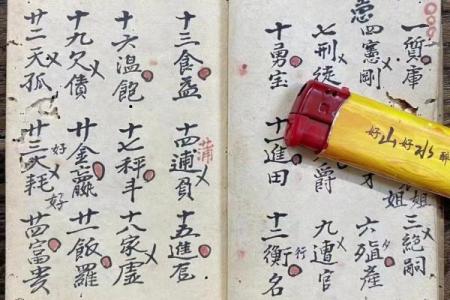 一質庫
姐 姐
三絕嗣
四憲剛
才
六殖產
七刑徒
爵
九遭官
十勇宝
十一進田
十二衡名
行
十三食益
十四逋負
蒲
十五進
十六温飽
十七秤斗
十八家虛
十九欠債
廿金贏
廿一飯羅
廿二天孤
廿三天耗
好
好
廿四富貴
好山好水